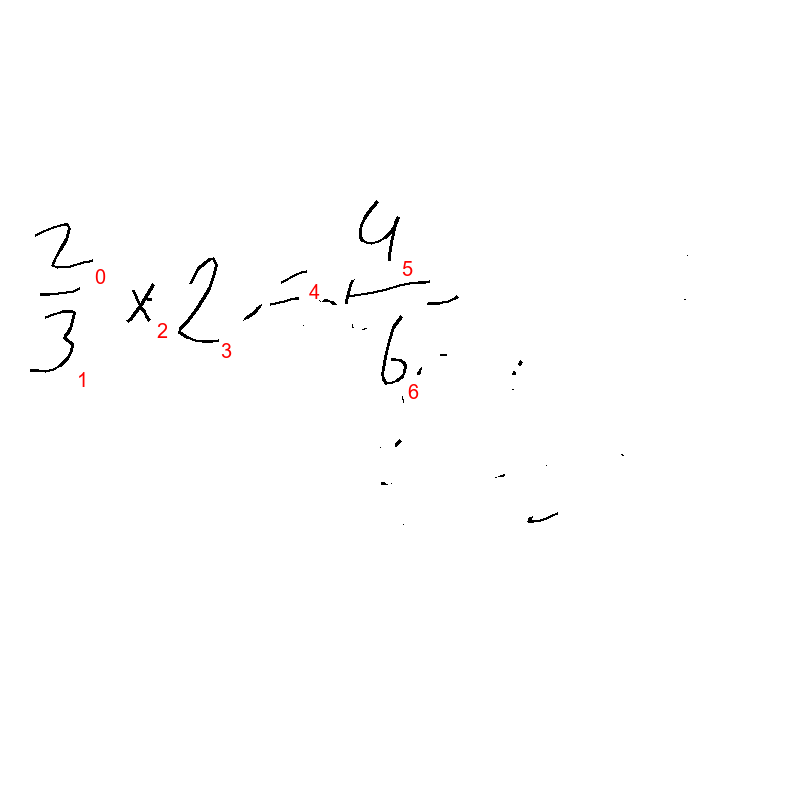 2/3 × 2 = 4/6
0 1 2 3 4 5 6